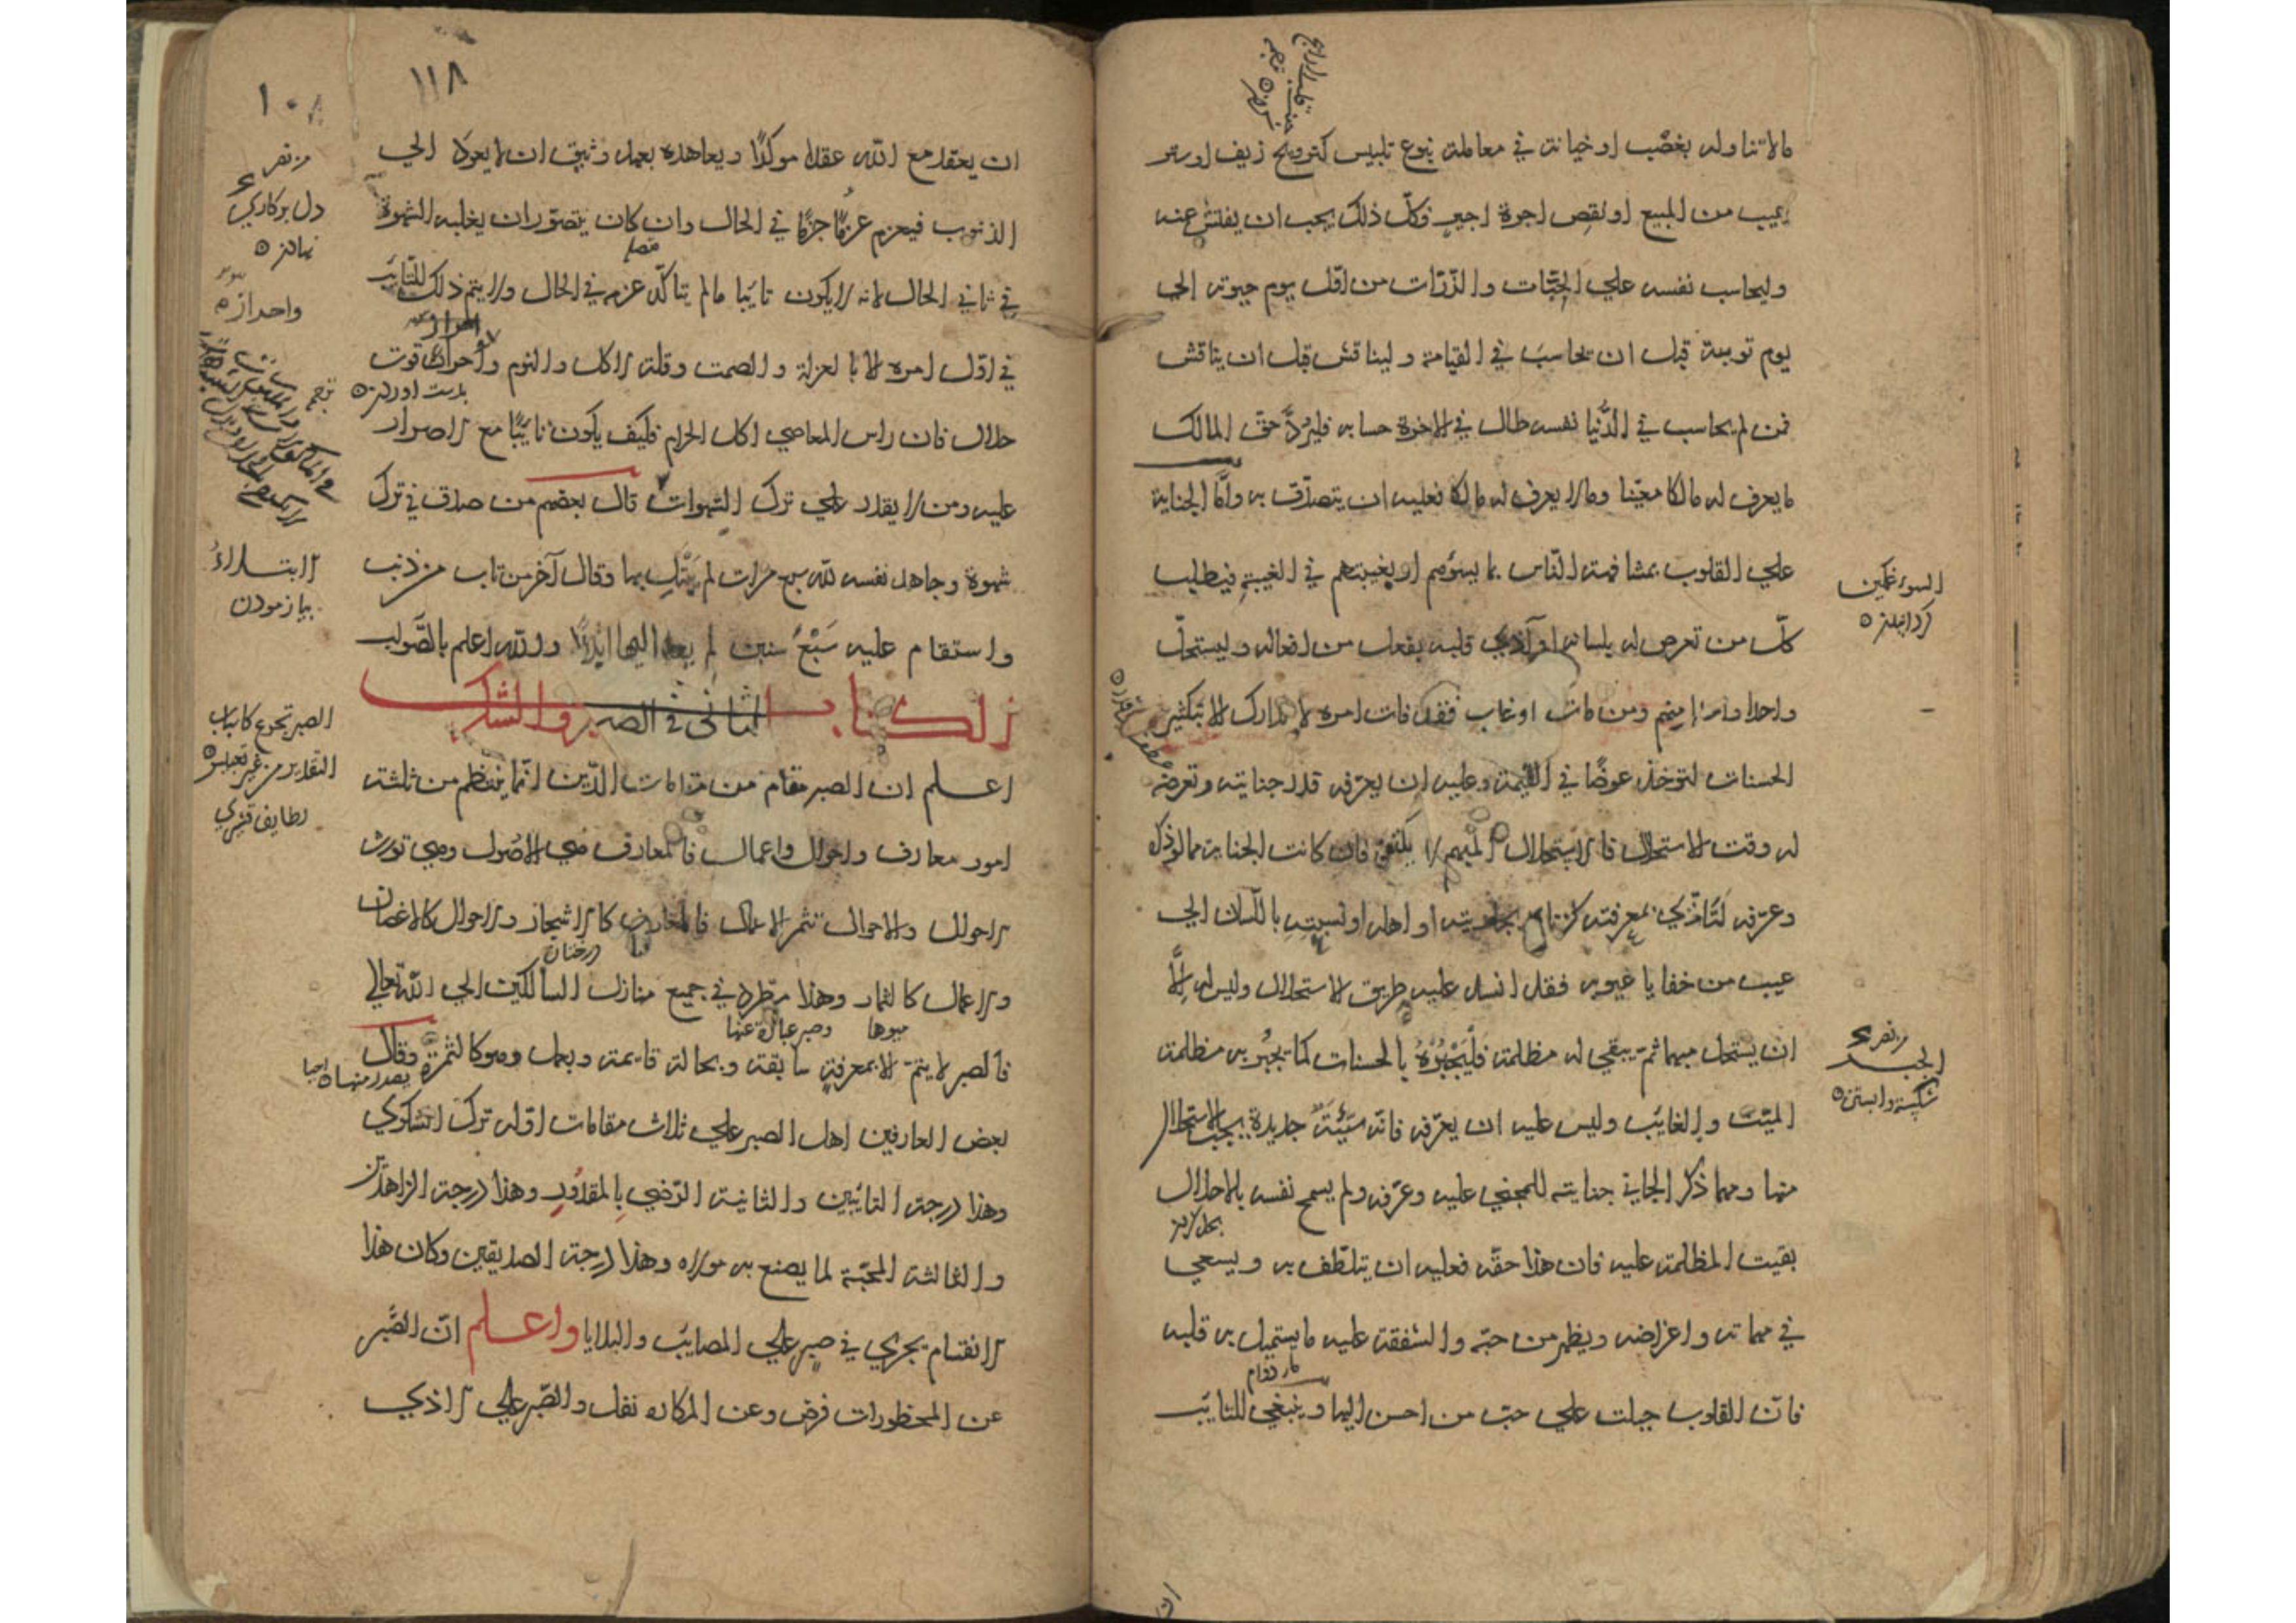 مالا تناوله بغصب او خيانة في معاملة بنوع تلبيس كترويج زيف او ستر
عيب من المبيع او نقص اجرة اجير فكلّ ذلك يجب ان يفتش عنه
وليحاسب نفسه علي الحبّات والذّرّات من اوّل يوم حيوته الي
يوم توبته قبل ان يحاسب في القيامة وليناقش قبل ان يناقش
فمن لم يحاسب في الدّنيا نفسه طال في الاخرة حسابه فليردَّ حقّ المالك
ما يعرف له مالكا معيّنا وما لا يعرف له مالكا فعليه ان يتصدّق به وامّا الجناية
علي القلوب بمشافهة النّاس بما يسوءهم او بغيبتهم في الغيبة فيطلب
كلّ من تعرض له بلسانه او آذي قلبه بفعل من افعاله وليستحلّ
واحدا واحدا منهم ومن مات او غاب فقد فات امره لا يتدارك الا بتكثير
الحسنات لتوخذ عوضًا في القيمة وعليه ان يعرّفه قدر جنايته وتعرضه
له وقت الاستحلال فالاستحلال المبهم لا يكفي فان كانت الجناية مما لو ذكره
وعرّفه لتأذّي بمعرفته كزناه بجاريته او اهله او نسبته باللسان الي
عيب من خفايا عيوبه فقد انسد عليه طريق الاستحلال وليس له إلاّ
ان يستحل مبهما ثمّ يبقي له مظلمة فليَجْبُرْهُ بالحسنات كما يجبُر به مظلمة
الميّت والغايب وليس عليه ان يعرّفه فانّه سَيّئَة جديدة يجب الاستحلال
منها ومهما ذكر الجاني جنايته للمجني عليه وعرّفه ولم يسمح نفسه بالاحلال
بقيت المظلمة عليه فان هذا حقّه فعليه ان يتلطّف به ويسعي
في مهماته واغراضه ويظهر من حبّه والشفقة عليه ما يستميل به قلبه
فانّ القلوب جبلت علي حبّ من احسن اليها وينبغي للتايب
السوء غمكين
كردانيدن
الجبر
شكسته وابستن
١١٨
ان يعقد مع الله عقدا موكدًا ويعاهده بعهد وثيق ان لا يعود الي
الذنوب فيعزم عزمًا جزمًا في الحال وان كان يتصوّر ان يغلبه الشهوة
في ثاني الحال لانه لا يكون تايبا مالم يتاكّد عزمه في الحال ولا يتم ذلك للتّايب
في اوّل امره الا بالعزلة والصمت وقلة الاكل والنوم واحراز قوت
حلال فان راس المعاصي اكل الحرام فكيف يكون تايبًا مع الاصرار
عليه ومن لا يقدر علي ترك الشهوات قال بعضهم من صدق في ترك
شهوة وجاهد نفسه لله سبع مرات لم يبتل بها وقال آخر من تاب من ذنب
واستقام عليه سَبْعُ سنين لم يعد اليها ابدًا والله اعلم بالصّواب
الكتاب الثاني في الصبر والشكر
اعلم ان الصبر مقام من مقامات الدّين انّما ينتظم من ثلثة
امور معارف واحوال واعمال فالمعارف هي الاصول وهي تورث
الاحوال والاحوال تثمر الاعمال فالمعارف كالاشجار والاحوال كالاغصان
والاعمال كالثمار وهذا مطّرد في جميع منازل السالكين الي الله تعالي
فالصبر لا يتمّ الا بمعرفة سابقة وبحالة قايمة وبعمل وهو كالثمرة وقال
بعض العارفين اهل الصبر علي ثلاث مقامات اوّله ترك الشكوي
وهذا درجة التايبين والثانية الرّضي بالمقدور وهذا درجة الزاهدين
والثالثة المحبّة لما يصنع به مولاه وهذا درجة الصديقين وكان هذا
الانقسام يجري في صبر علي المصايب والبلايا واعلم انّ الصّبر
عن المحظورات فرض وعن المكاره نفل والصّبر علي الاذي
دل بر كاري
نهادن
الابتلاء
بيازمودن
الصبر تجرع كاسات
التقدير من غير تعبيس
لطايف قشيري